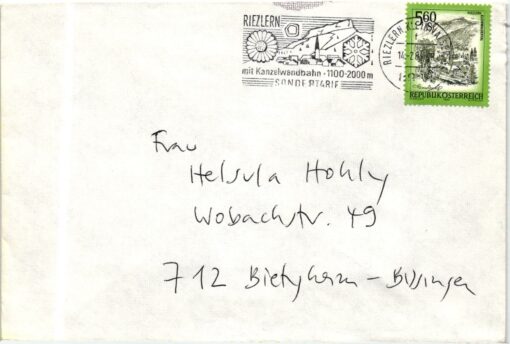 RIEZLERN
mit Kanzelwandbahn · 1100-2000 m
SONDERTARIF
RIEZLERN, KL
5,60
REPUBLIK ÖSTERREICH
Frau
Helsula Hohly
Wobachstr. 49
712 Bietigheim - Bissingen